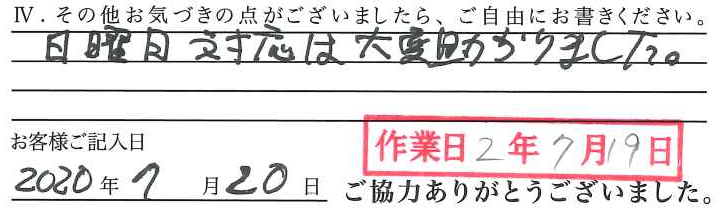 Ⅳ．その他お気づきの点がございましたら、ご自由にお書きください。
日曜日対応は大変助かりました。
お客様ご記入日
作業日2年7月19日
2020年7月20日
ご協力ありがとうございました。